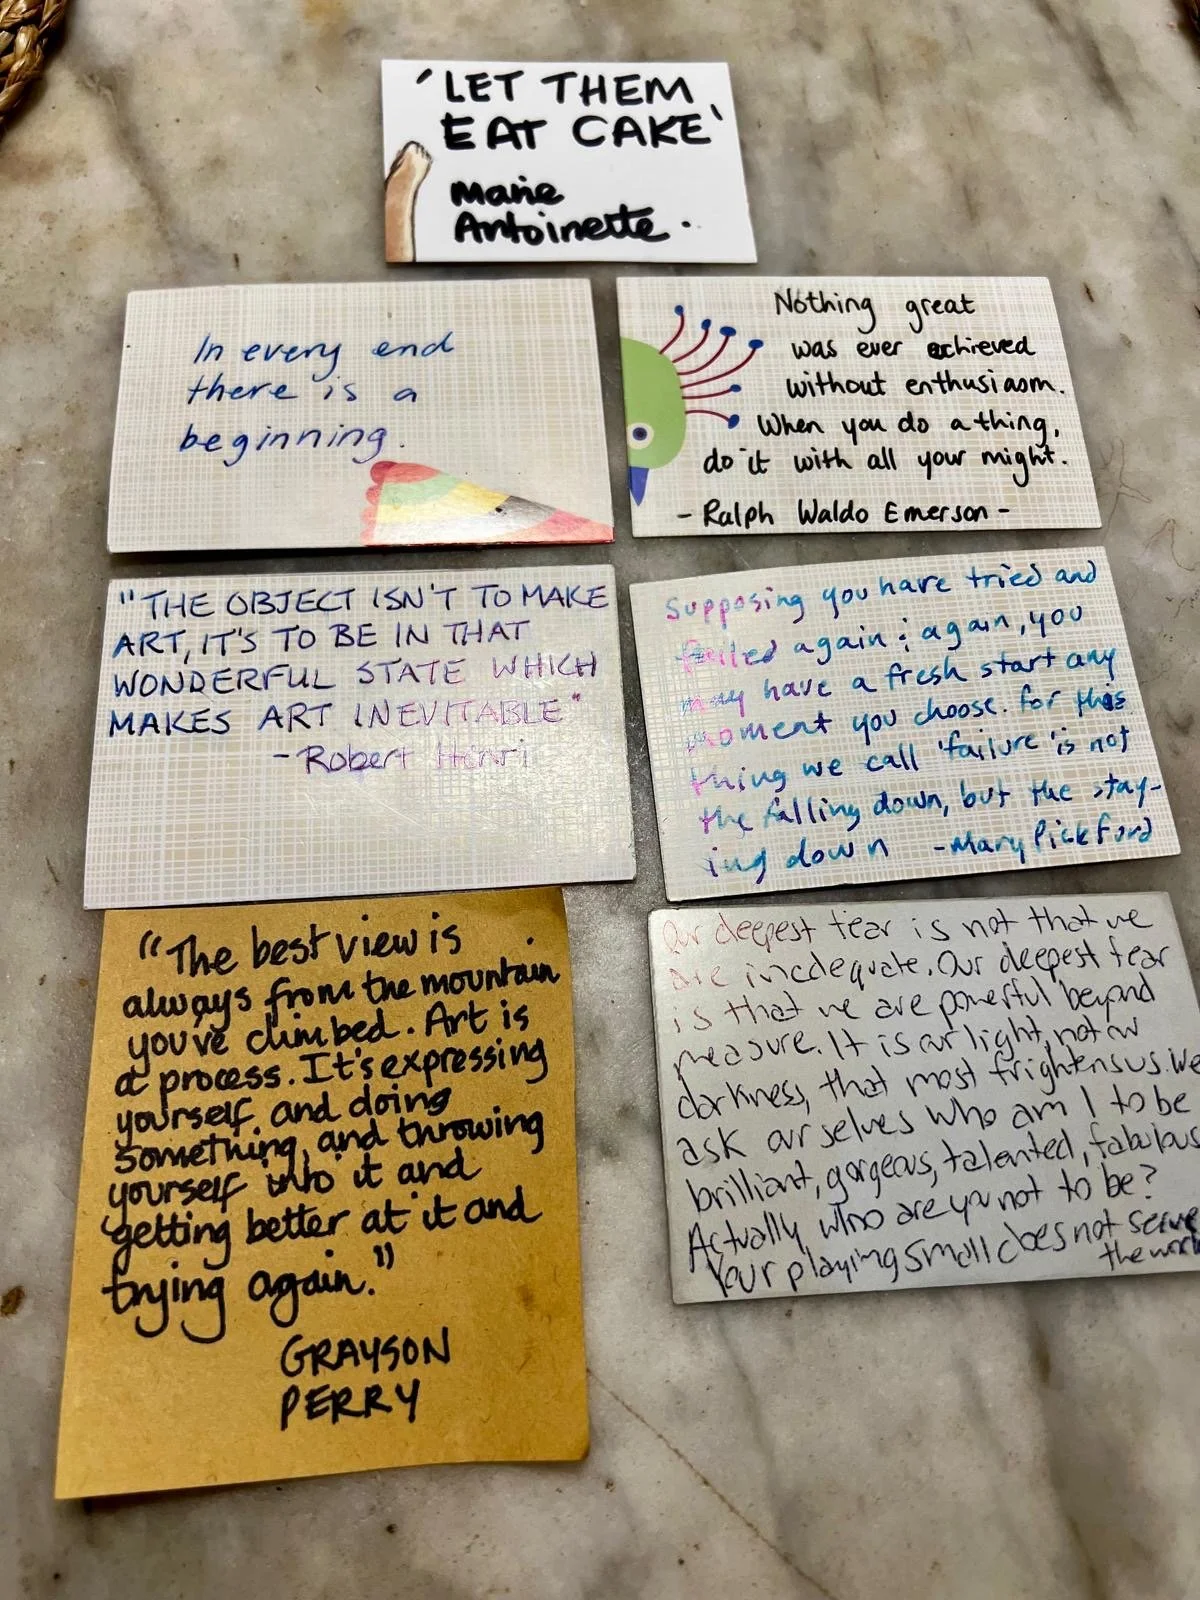 'LET THEM
EAT CAKE'
Marie
Antoinette.
In every end
there is a
beginning.
Nothing great
was ever achieved
without enthusiasm.
When you do a thing,
do it with all your might.
- Ralph Waldo Emerson -
"THE OBJECT ISN'T TO MAKE
ART, IT'S TO BE IN THAT
WONDERFUL STATE WHICH
MAKES ART INEVITABLE"
- Robert Henri
Supposing you have tried and
failed again & again, you
may have a fresh start any
moment you choose. for this
thing we call 'failure' is not
the falling down, but the stay-
ing down - Mary Pickford
"The best view is
always from the mountain
you've climbed. Art is
a process. It's expressing
yourself and doing
something, and throwing
yourself into it and
getting better at it and
trying again."
GRAYSON
PERRY
Our deepest fear is not that we
are inadequate. Our deepest fear
is that we are powerful beyond
measure. It is our light, not our
darkness, that most frightens us. We
ask ourselves who am I to be
brilliant, gorgeous, talented, fabulous
Actually who are you not to be?
Your playing small does not serve
the world